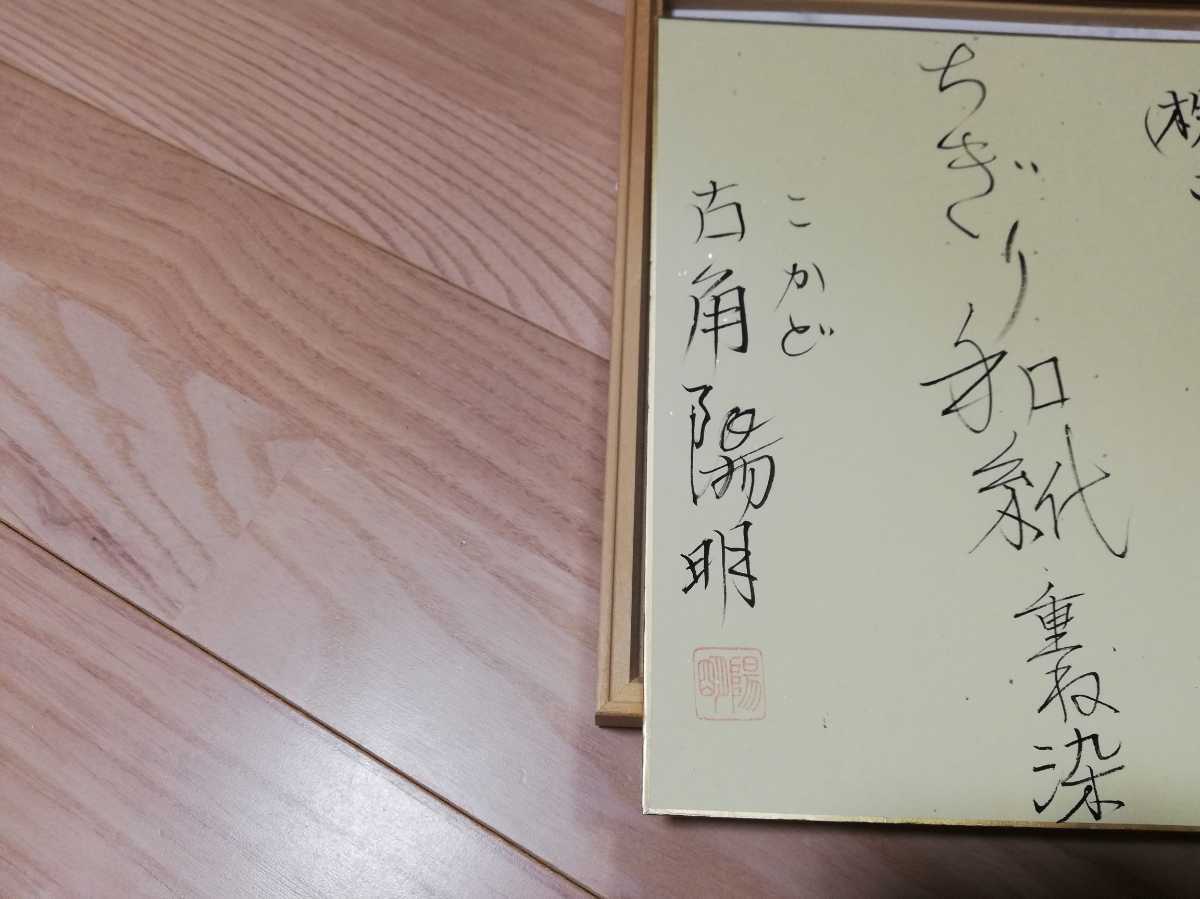 (株
ちぎり和紙重ね染
こかど
古角陽明
陽明